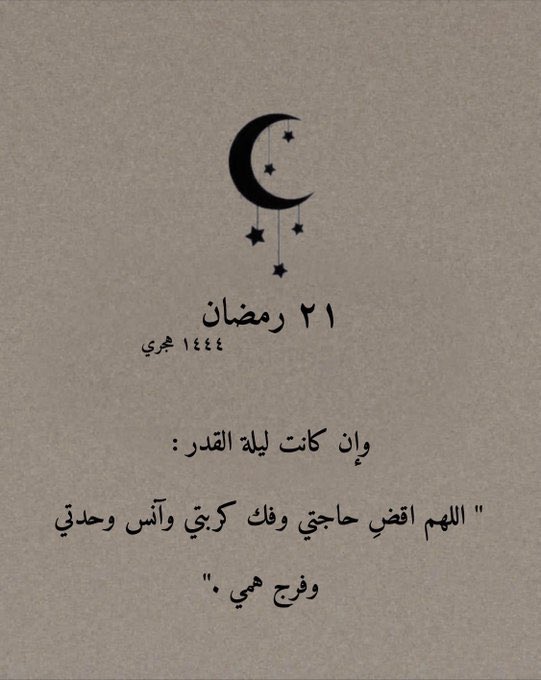 ٢١ رمضان
١٤٤٤ هجري
وإن كانت ليلة القدر :
" اللهم اقضِ حاجتي وفك كربتي وآنس وحدتي
وفرج همي ."